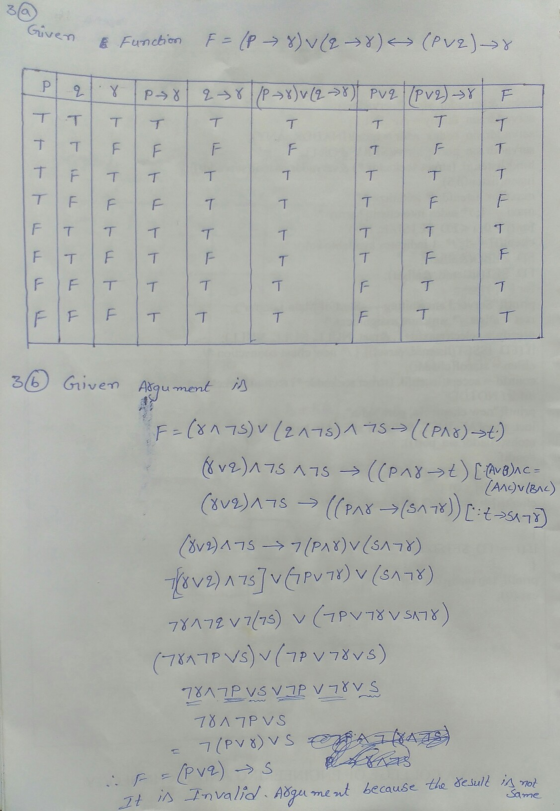 3(a)
Given Function F = (P → r) ∨ (q → r) ↔ (P∨q) → r
P q r P→r q→r (P→r)∨(q→r) P∨q (P∨q)→r F
T T T T T T T T T
T T F F F F T F T
T F T T T T T T T
T F F F T T T F F
F T T T T T T T T
F T F T F T T F F
F F T T T T F T T
F F F T T T F T T
3(b) Given Argument is
F = (r∧¬s)∨(q∧¬s)∧¬s→((P∧r)→t)
(r∨q)∧¬s∧¬s → ((P∧r→t) [(A∨B)∧C=
(A∧C)∨(B∧C)
(r∨q)∧¬s → ((P∧r→(s∧¬r)) [∵t→s∧¬r]
(r∨q)∧¬s → ¬(P∧r)∨(s∧¬r)
¬[(r∨q)∧¬s]∨(¬P∨¬r)∨(s∧¬r)
¬r∧¬q∨¬(¬s) ∨ (¬P∨¬r∨s∧¬r)
(¬r∧¬P∨s)∨(¬P∨¬r∨s)
¬r∧¬P∨s∨¬P∨¬r∨s
¬r∧¬P∨s
= ¬(P∨r)∨s
∴ F = (P∨q) → s
It is Invalid. Argument because the result is not
same